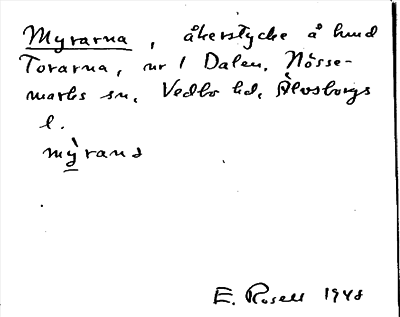 Myrarna, åkerstycke å
Torarna, nr 1 Dalen, Nösse-
marks sn, Vedbo hd, Älvsborgs
l.
mỳrana
E. Rosell 1948